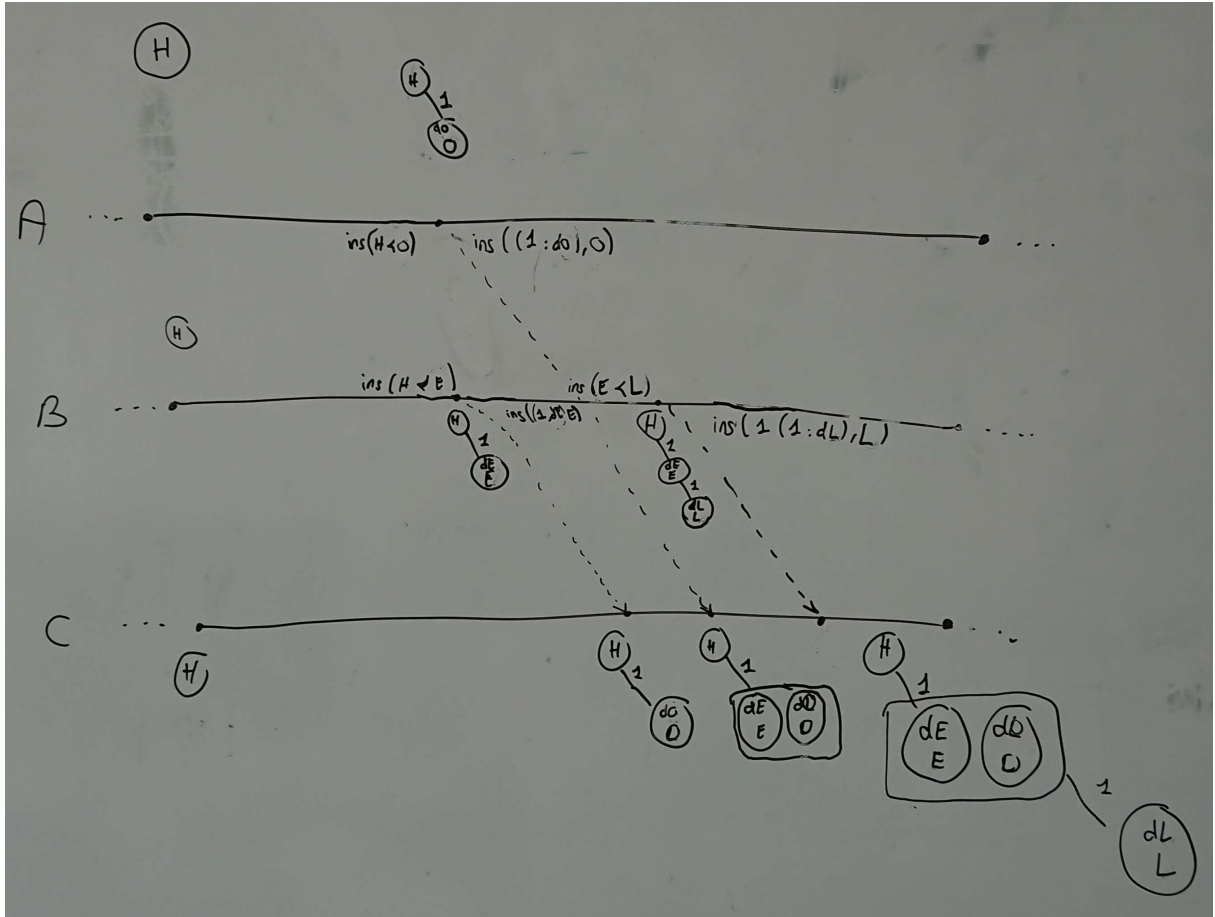 H
H
1
dO
O
A ...
ins(H<O) ins((1:dO),O)
...
H
B ....
ins(H<E)
ins((1:dE),E)
ins(E<L)
ins(1(1:dL),L)
....
H
1
dE
E
H
1
dE
E
1
dL
L
C ...
. . .
H
H
1
dO
O
H
1
dE dO
E O
H
1
dE dO
E O
1
dL
L